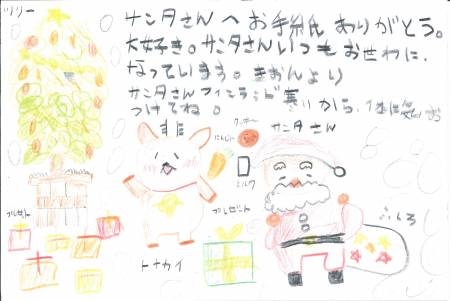 ツリー
サンタさんへお手紙ありがとう。
大好き。サンタさんいつもお世わに
なっています。きおんより
サンタさんフィンランド寒いから、体に気お
つけてね。
クッキー
にんじん
サンタさん
ミルク
プレゼント
プレゼント
ふくろ
トナカイ